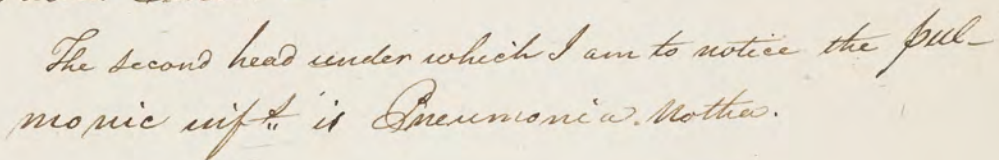 The second head under which I am to notice the pul-
monic inft. is Pneumonia Notha.